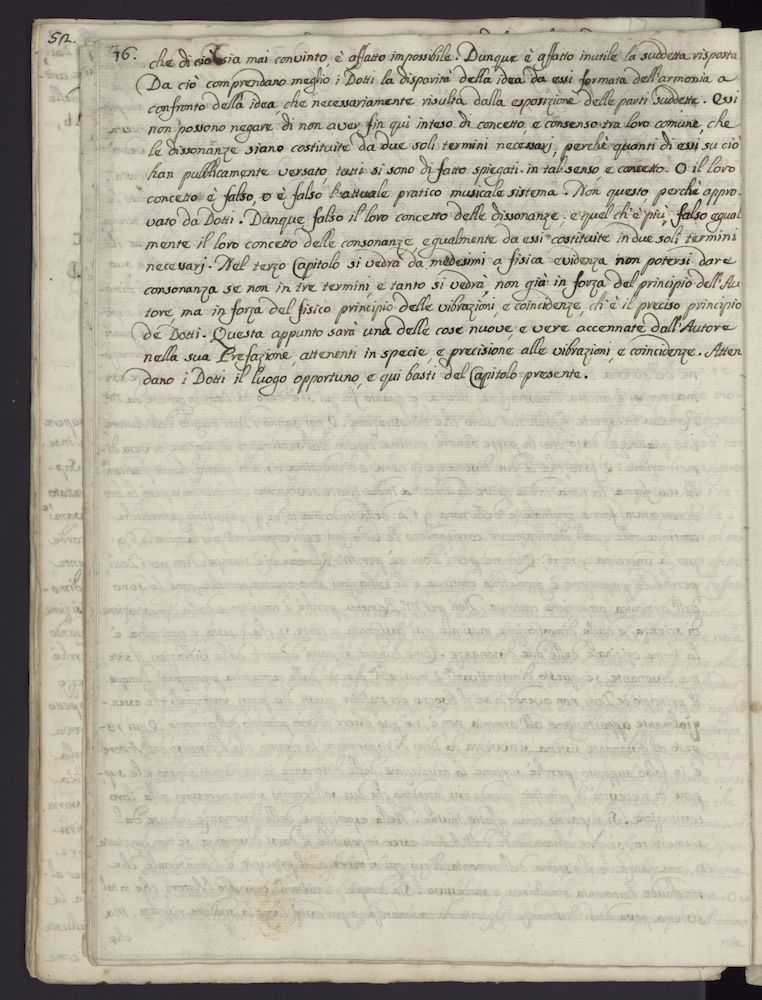 52.
16.
che di ciò sia mai convinto, è affatto impossibile. Dunque è affatto inutile la suddetta risposta
Da ciò comprendano meglio i Dotti la disparità della idea da essi formata dell'armonia a
confronto della idea, che necessariamente risulta dalla esposizione delle parti suddette. Essi
non possono negare di non aver fin quì inteso di concetto, e consenso tra loro comune, che
le dissonanze siano costituite da due soli termini necessarj, perchè quanti di essi su ciò
han pubblicamente versato, tutti si sono di fatto spiegati in tal senso e concetto. O il loro
concetto è falso, o è falso l'attuale pratico musicale sistema. Non questo, perchè appro
vato da Dotti. Dunque falso il loro concetto delle dissonanze. e quel ch'è più, falso egual
mente il loro concetto delle consonanze, egualmente da essi costituite in due soli termini
necessarj. Nel terzo Capitolo si vedrà da medesimi a fisica evidenza non potersi dare
consonanza se non in tre termini, e tanto si vedrà, non già in forza del principio dell'Au
tore, ma in forza del fisico principio delle vibrazioni, e coincidenze, ch'è il preciso principio
de Dotti. Questa appunto sarà una delle cose nuove, e vere accennate dall'Autore
nella sua Prefazione, attenenti in specie, e precisione alle vibrazioni, e coincidenze. Atten
dano i Dotti il luogo opportuno, e qui basti del Capitolo presente.